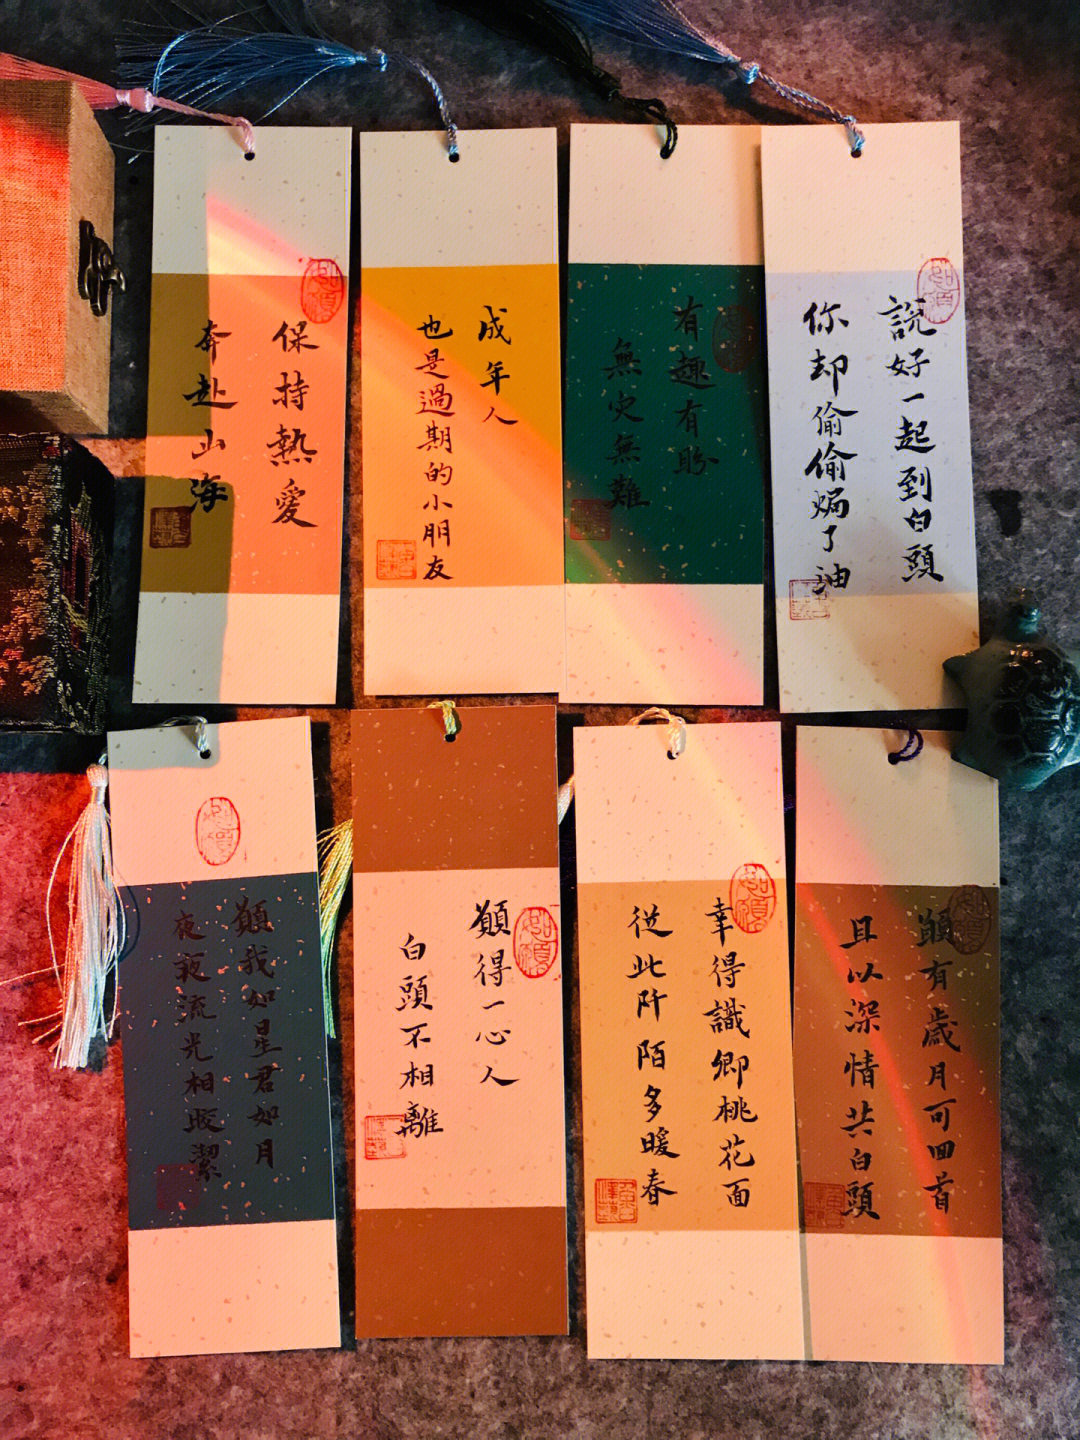 保持熱愛
奔赴山海
如願
成年人
也是過期的小朋友
有趣有盼
無灾無難
如願
說好一起到白頭
你却偷偷焗了油
如願
願我如星君如月
夜夜流光相皎潔
如願
願得一心人
白頭不相離
如願
幸得識卿桃花面
從此阡陌多暖春
如願
願有歲月可回首
且以深情共白頭
如願